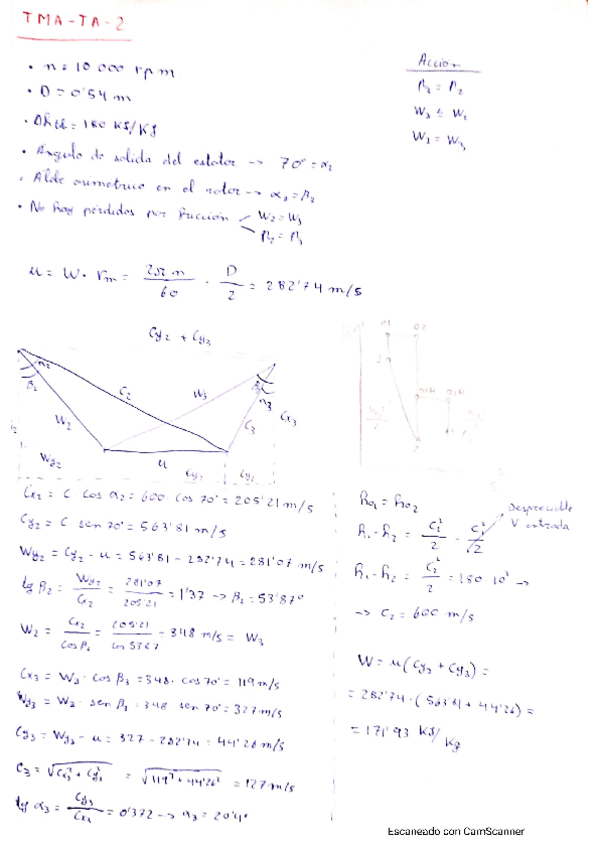 TMA-TA-2
• n = 10 000 rpm
• D = 0'54 m
• Δh = 180 KJ/Kg
• Angulo de salida del estator → 70° = α2
• No hay pérdidas por fricción W2 = W3
Acción
W2 = W3
u = W · rm = 2πn/60 · D/2 = 282'74 m/s
Cy2 + Cy3
α2
β2
C2
W3
α3
Cx3
W2
C3
Wy2
u
Cy3
Cx2 = C · cos α2 = 600 · cos 70° = 205'21 m/s
Cy2 = C sen 70° = 563'81 m/s
Wy2 = Cy2 - u = 563'81 - 282'74 = 281'07 m/s
tg β2 = Wy2/Cx2 = 281'07/205'21 = 1'37 → β2 = 53'87°
W2 = Cx2/cos β2 = 205'21/cos 53'87 = 348 m/s = W3
Cx3 = W3 · cos β3 = 348 · cos 70° = 119 m/s
Wy3 = W3 · sen β3 = 348 sen 70° = 327 m/s
Cy3 = Wy3 - u = 327 - 282'74 = 44'26 m/s
C3 = √Cx3² + Cy3² = √119² + 44'26² = 127 m/s
tg α3 = Cy3/Cx3 = 0'372 → α3 = 20'4°
h01 = h02
Despreciable
V entrada
h1 - h2 = C2²/2 - C1²/2
h1 - h2 = C2²/2 = 180 · 10³ →
→ C2 = 600 m/s
W = u (Cy2 + Cy3) =
= 282'74 · (563'81 + 44'26) =
= 171'93 KJ/Kg
Escaneado con CamScanner